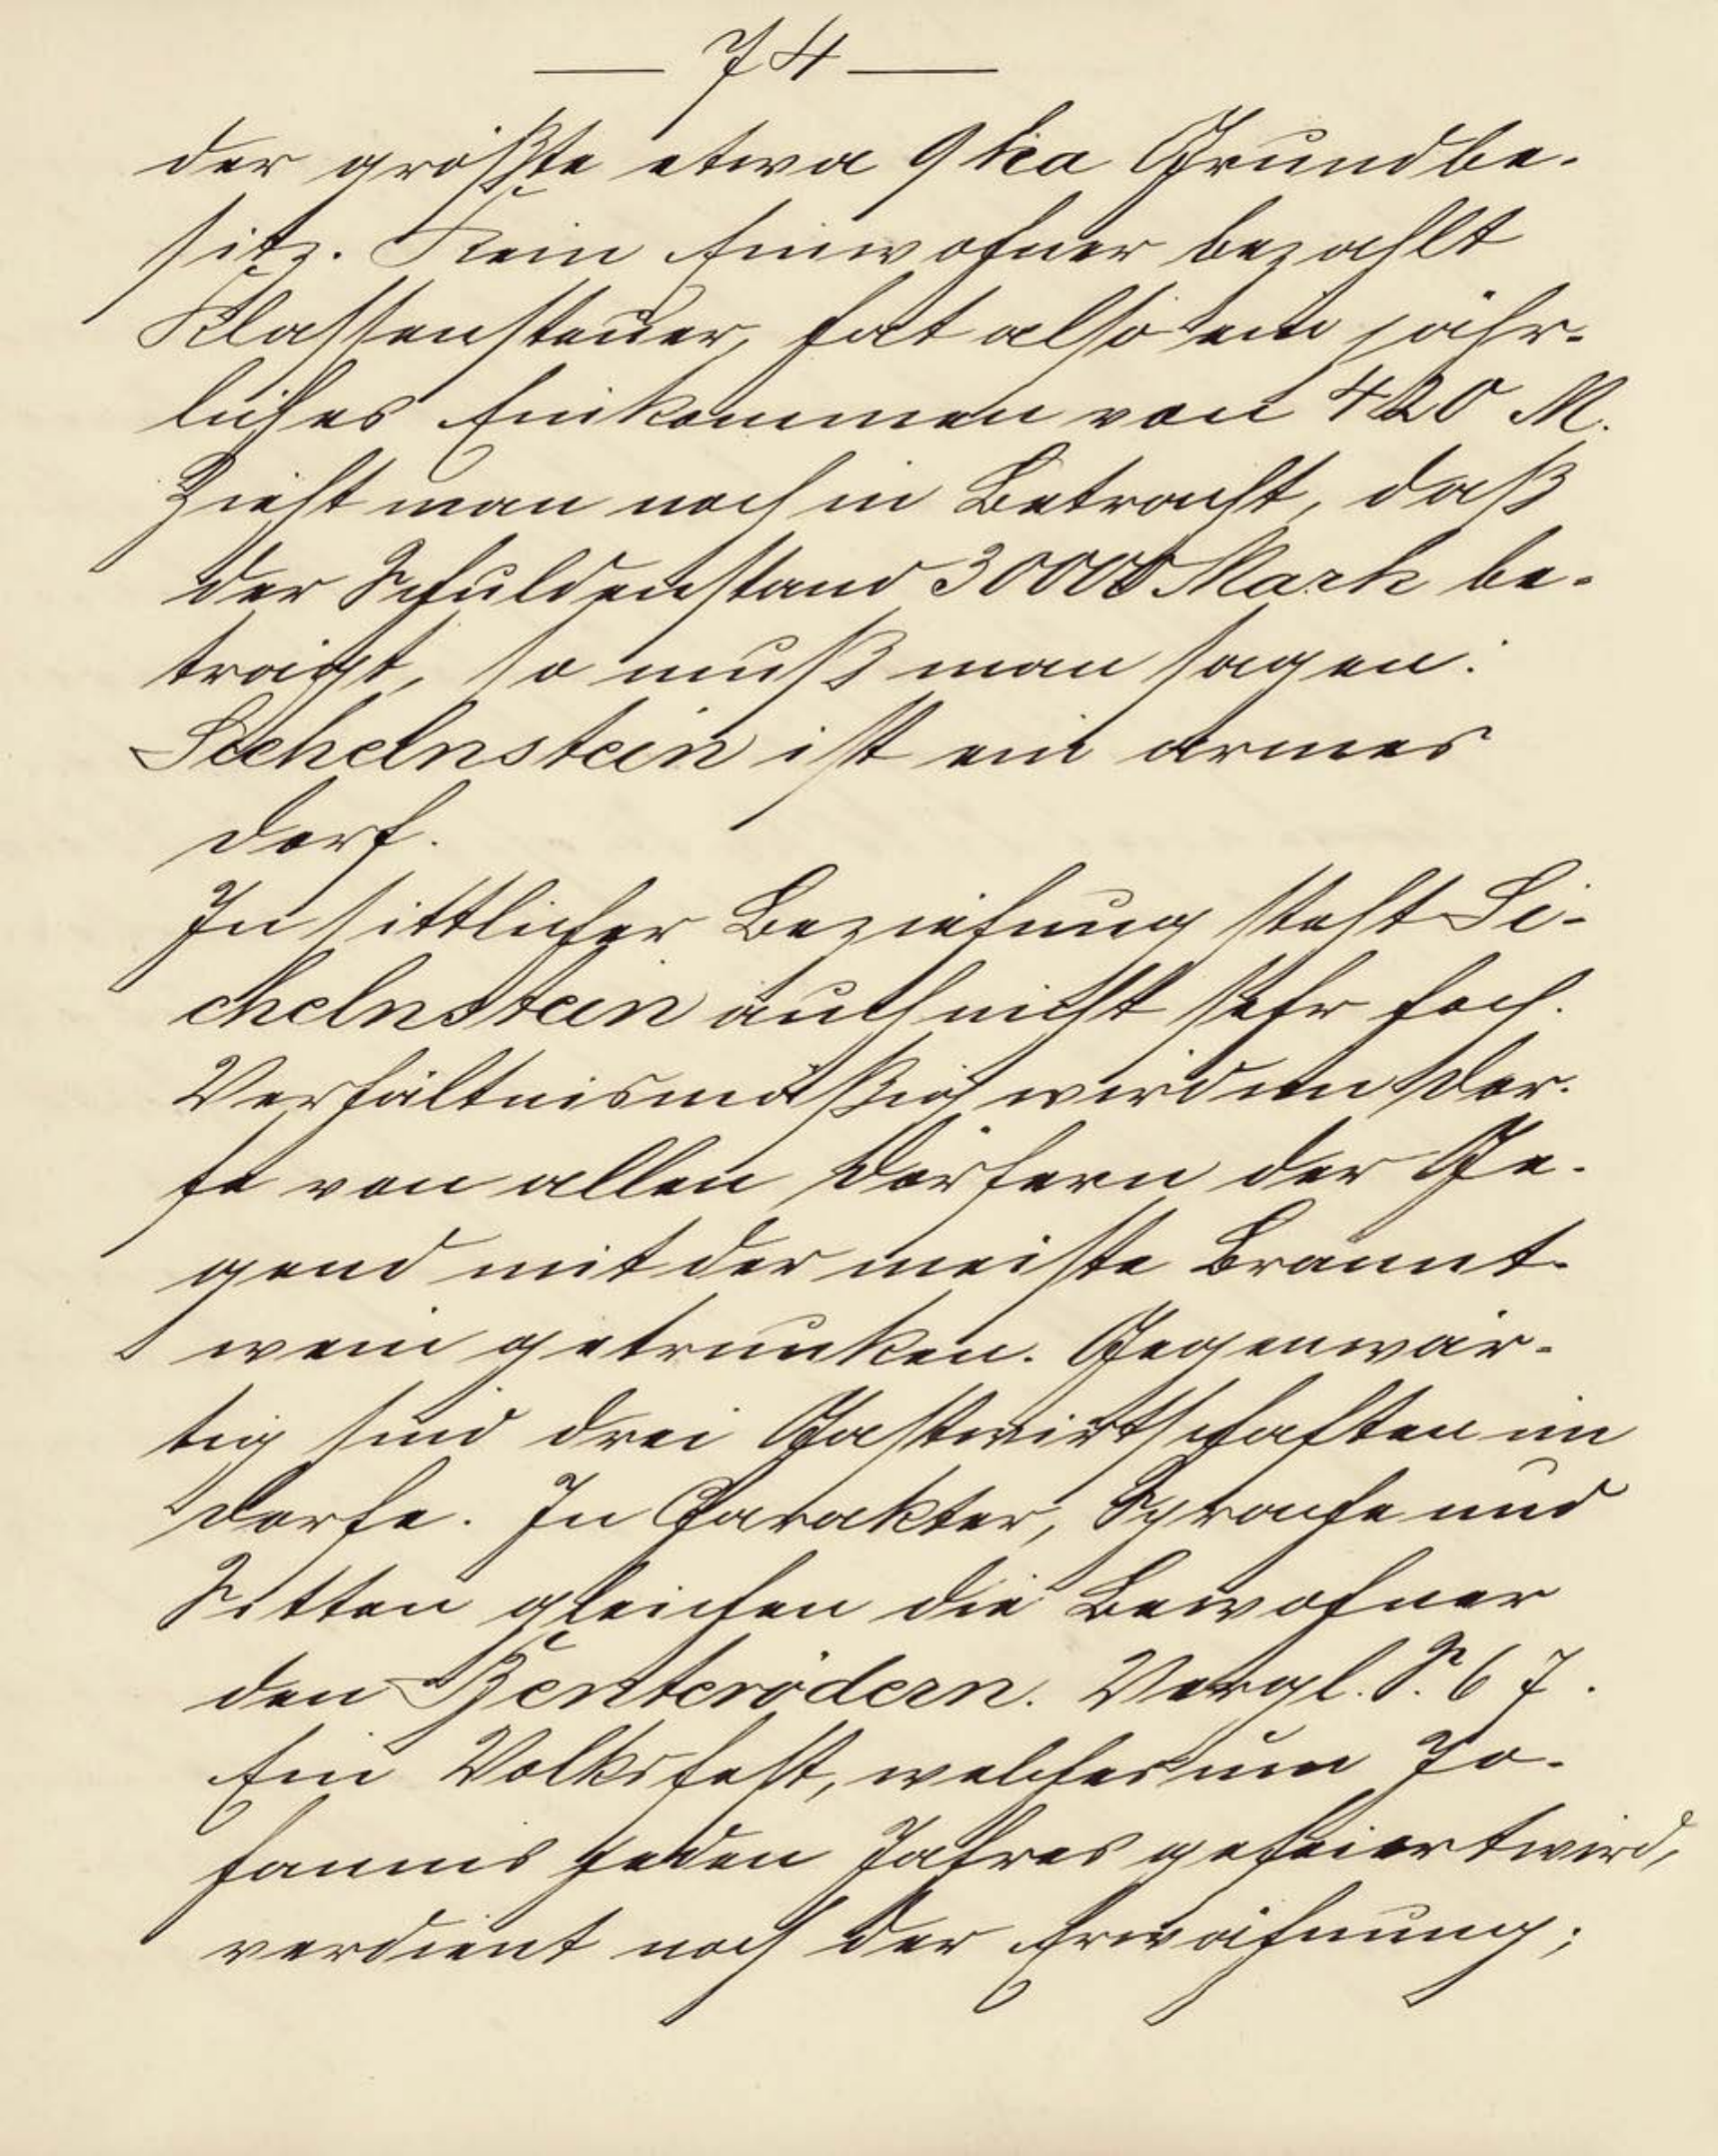 — 74 —
der größte etwa 9 ha Grundbe-
sitz. Kein Einwohner bezahlt
Klassensteuer, hat also ein jähr-
liches Einkommen von 420 M.
Zieht man noch in Betracht, daß
der Schuldenstand 30000 Mark be-
trägt, so muß man sagen:
Sichelnstein ist ein armes
Dorf.
In sittlicher Beziehung steht Si-
chelnstein auch nicht sehr hoch.
Verhältnismäßig wird im Dor-
fe von allen Dörfern der Ge-
gend mit der meiste Brannt-
wein getrunken. Gegenwär-
tig sind drei Gastwirtschaften im
Dorfe. In Charakter, Sprache und
Sitten gleichen die Bewohner
den Benterödern. Vergl. S. 67.
Ein Volksfest, welches um Jo-
hannis jeden Jahres gefeiert wird,
verdient noch der Erwähnung;